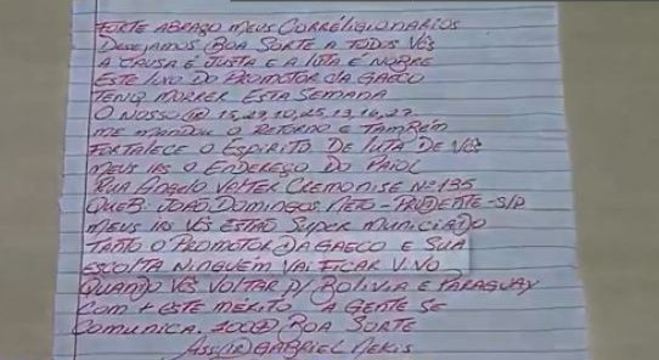 FORTE ABRAÇO MEUS CORRÉLIGIONARIOS
DESEJAMOS BOA SORTE A TODOS VÊS
A CAUSA É JUSTA E A LUTA É NOBRE
ESTE LIXO DO PROMOTOR DA GAECO
TENQ MORRER ESTA SEMANA
O NOSSO 15,29,10,25,13,16,27
ME MANDOU O RETORNO E TAMBÉM
FORTALECE O ESPIRITO DE LUTA DE VÊS
MEUS IRS O ENDEREÇO DO PAIOL
RUA ANGELO VOLTER CREMONISE Nº 195
QUEB. JOÃO DOMINGOS NETO - PRUDENTE - S/P
MEUS IRS VÊS ESTÃO SUPER MUNICIADO
TANTO O PROMOTOR DA GAECO E SUA
ESCOLTA NINGUÉM VAI FICAR VIVO
QUANDO VÊS VOLTAR P/ BOLIVIA E PARAGUAY
COM + ESTE MÉRITO A GENTE SE
COMUNICA. BOA SORTE
ASS GABRIEL